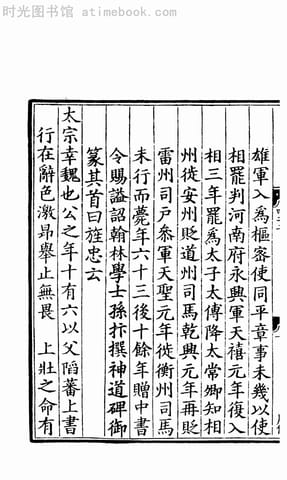 时光图书馆 atimebook.com
雄軍入爲樞密使同平章事未幾以使
相罷判河南府永興軍天禧元年復入
相三年罷爲太子太傅降太常卿知相
州徙安州貶道州司馬乾興元年再貶
雷州司戶參軍天聖元年徙衡州司馬
未行而薨年六十三後十餘年贈中書
令賜諡詔翰林學士孫抃撰神道碑御
篆其首曰旌忠云
太宗幸魏也公之年十有六以父陷蕃上書
行在辭色激昂舉止無畏 上壯之命有